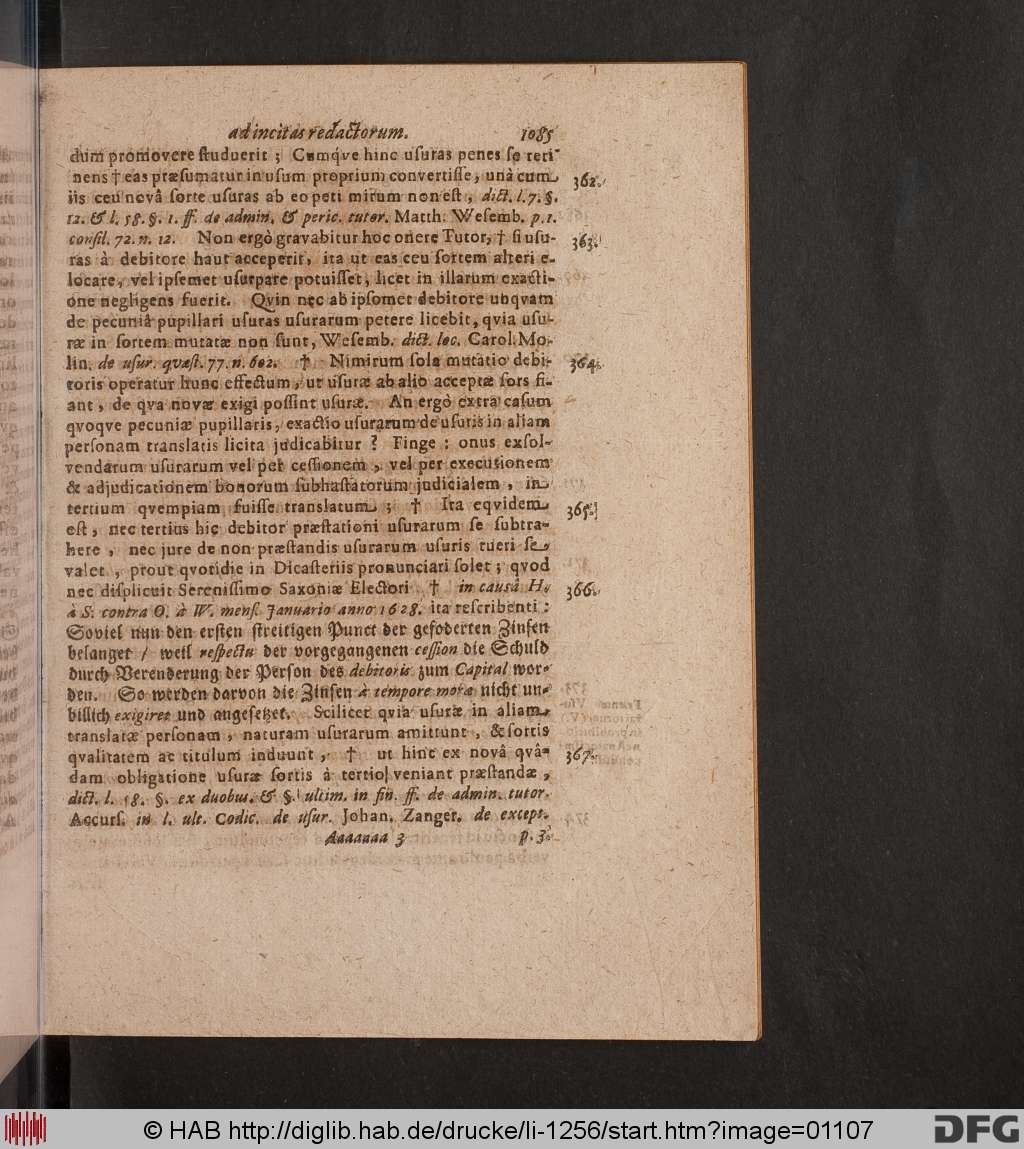 ad incitas redactorum. 1085
dum promovere studuerit; Cumq́ve hinc usuras penes se reti-
nens † eas præsumatur in usum proprium convertisse, unà cum 362.
iis ceu novâ sorte usuras ab eo peti mirum non est, dict. l. 7. §.
12. & l. 58. §. 1. ff. de admin. & peric. tutor. Matth: Wesemb. p. 1.
consil. 72. n. 12. Non ergò gravabitur hoc onere Tutor, † si usu- 363.
ras à debitore haut acceperit, ita ut eas ceu sortem alteri e-
locare, vel ipsemet usurpare potuisset, licet in illarum exacti-
one negligens fuerit. Qvin nec ab ipsomet debitore unqvam
de pecuniâ pupillari usuras usurarum petere licebit, qvia usu-
ræ in sortem mutatæ non sunt, Wesemb. dict. loc. Carol. Mo-
lin. de usur. qvæst. 77. n. 602. † Nimirum sola mutatio debi- 364.
toris operatur hunc effectum, ut usuræ ab alio acceptæ sors fi-
ant, de qva novæ exigi possint usuræ. An ergò extra casum
qvoqve pecuniæ pupillaris, exactio usurarum de usuris in aliam
personam translatis licita judicabitur? Finge: onus exsol-
vendarum usurarum vel per cessionem, vel per executionem
& adjudicationem bonorum subhastatorum judicialem, in
tertium qvempiam fuisse translatum; † Ita eqvidem 365.
est, nec tertius hic debitor præstationi usurarum se subtra-
here, nec jure de non præstandis usurarum usuris tueri se
valet, prout qvotidie in Dicasteriis pronunciari solet; qvod
nec displicuit Serenissimo Saxoniæ Electori † in causâ H. 366.
à S. contra O. à W. mens. Januario anno 1628. ita rescribenti:
Soviel nun den ersten streitigen Punct der gefoderten Zinsen
belanget / weil respectu der vorgegangenen cession die Schuld
durch Verenderung der Person des debitoris zum Capital wor-
den. So werden darvon die Zinsen à tempore moræ nicht un-
billich exigiret und angesetzet. Scilicet qvia usuræ in aliam
translatæ personam, naturam usurarum amittunt, & sortis
qvalitatem ac titulum induunt, † ut hinc ex novâ qvâ- 367.
dam obligatione usuræ sortis à tertio veniant præstandæ,
dict. l. 58. §. ex duobus. & §. ultim. in fin. ff. de admin. tutor.
Accurs. in l. ult. Codic. de usur. Johan. Zanger. de except.
Aaaaaaa 3 p. 3.
© HAB http://diglib.hab.de/drucke/li-1256/start.htm?image=01107
DFG